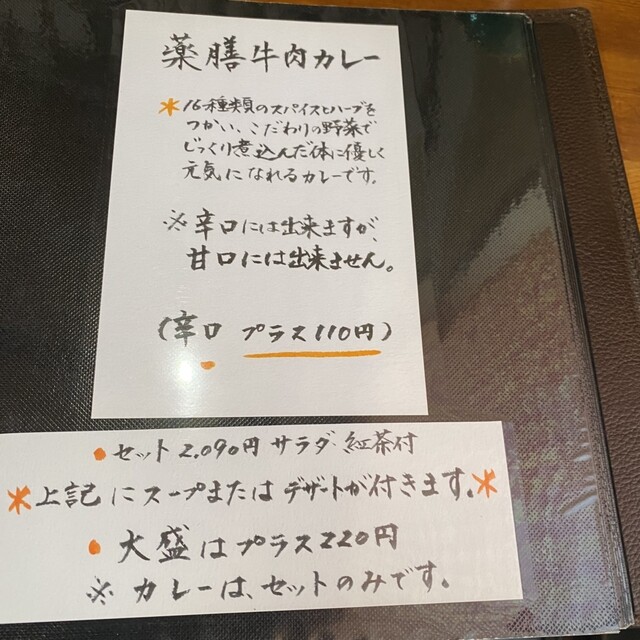 薬膳牛肉カレー
＊16種類のスパイスとハーブを
つかい、こだわりの野菜で
じっくり煮込んだ体に優しく
元気になれるカレーです。
※辛口には出来ますが、
甘口には出来ません。
(辛口 プラス110円)
•セット2,090円 サラダ 紅茶付
＊上記にスープまたはデザートが付きます。＊
•大盛はプラス220円
※カレーは、セットのみです。